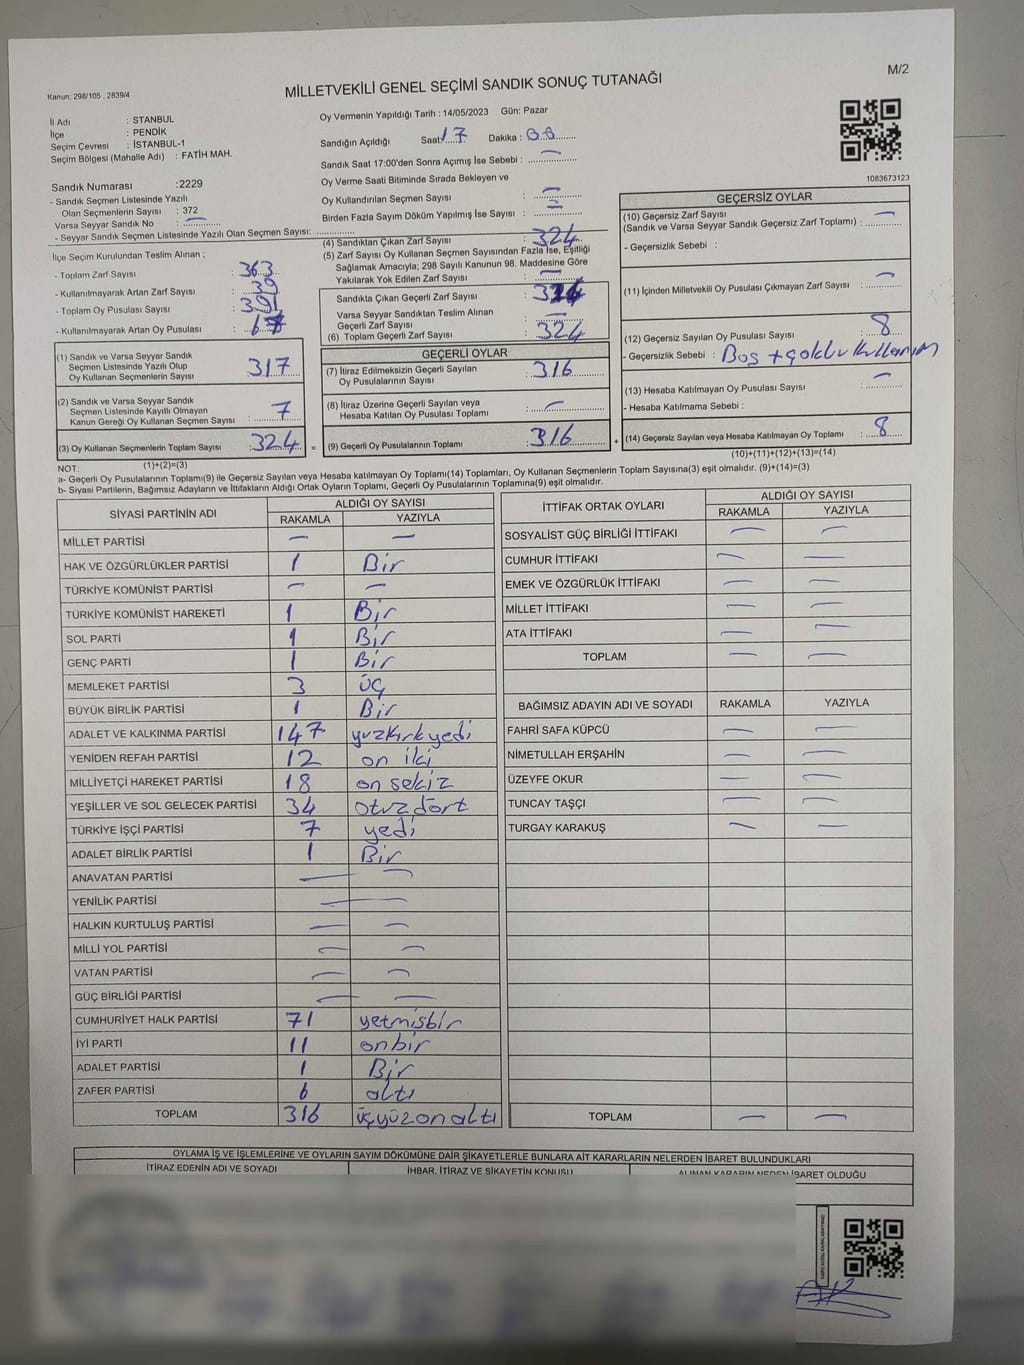 M/2
Kanun: 298/105 . 2839/4
MİLLETVEKİLİ GENEL SEÇİMİ SANDIK SONUÇ TUTANAĞI
İl Adı : STANBUL
İlçe : PENDİK
Seçim Çevresi : İSTANBUL-1
Seçim Bölgesi (Mahalle Adı) : FATİH MAH.
Sandık Numarası :2229
- Sandık Seçmen Listesinde Yazılı
Olan Seçmenlerin Sayısı : 372
Varsa Seyyar Sandık No : —
- Seyyar Sandık Seçmen Listesinde Yazılı Olan Seçmen Sayısı:
Oy Vermenin Yapıldığı Tarih : 14/05/2023 Gün: Pazar
Sandığın Açıldığı Saat 17 Dakika :
Sandık Saat 17:00'den Sonra Açımış İse Sebebi : —
Oy Verme Saati Bitiminde Sırada Bekleyen ve
Oy Kullandırılan Seçmen Sayısı : —
Birden Fazla Sayım Döküm Yapılmış İse Sayısı : —
1083673123
İlçe Seçim Kurulundan Teslim Alınan ;
- Toplam Zarf Sayısı : 363
- Kullanılmayarak Artan Zarf Sayısı : 39
- Toplam Oy Pusulası Sayısı : 391
- Kullanılmayarak Artan Oy Pusulası : 67
(1) Sandık ve Varsa Seyyar Sandık
Seçmen Listesinde Yazılı Olup
Oy Kullanan Seçmenlerin Sayısı : 317
(2) Sandık ve Varsa Seyyar Sandık
Seçmen Listesinde Kayıtlı Olmayan
Kanun Gereği Oy Kullanan Seçmen Sayısı : 7
(3) Oy Kullanan Seçmenlerin Toplam Sayısı : 324 =
(1)+(2)=(3)
(4) Sandıktan Çıkan Zarf Sayısı : 324
(5) Zarf Sayısı Oy Kullanan Seçmen Sayısından Fazla İse, Eşitliği
Sağlamak Amacıyla; 298 Sayılı Kanunun 98. Maddesine Göre
Yakılarak Yok Edilen Zarf Sayısı : —
Sandıkta Çıkan Geçerli Zarf Sayısı : 324
Varsa Seyyar Sandıktan Teslim Alınan
Geçerli Zarf Sayısı : —
(6) Toplam Geçerli Zarf Sayısı : 324
GEÇERLİ OYLAR
(7) İtiraz Edilmeksizin Geçerli Sayılan
Oy Pusulalarının Sayısı : 316
(8) İtiraz Üzerine Geçerli Sayılan veya
Hesaba Katılan Oy Pusulası Toplamı : —
(9) Geçerli Oy Pusulalarının Toplamı : 316 +
GEÇERSİZ OYLAR
(10) Geçersiz Zarf Sayısı
(Sandık ve Varsa Seyyar Sandık Geçersiz Zarf Toplamı) : —
- Geçersizlik Sebebi :
(11) İçinden Milletvekili Oy Pusulası Çıkmayan Zarf Sayısı : —
(12) Geçersiz Sayılan Oy Pusulası Sayısı : 8
- Geçersizlik Sebebi : Boş + çoklu kullanım
(13) Hesaba Katılmayan Oy Pusulası Sayısı : —
- Hesaba Katılmama Sebebi :
(14) Geçersiz Sayılan veya Hesaba Katılmayan Oy Toplamı : 8
(10)+(11)+(12)+(13)=(14)
NOT:
a- Geçerli Oy Pusulalarının Toplamı(9) ile Geçersiz Sayılan veya Hesaba katılmayan Oy Toplamı(14) Toplamları, Oy Kullanan Seçmenlerin Toplam Sayısına(3) eşit olmalıdır. (9)+(14)=(3)
b- Siyasi Partilerin, Bağımsız Adayların ve İttifakların Aldığı Ortak Oyların Toplamı, Geçerli Oy Pusulalarının Toplamına(9) eşit olmalıdır.
SİYASİ PARTİNİN ADI ALDIĞI OY SAYISI
RAKAMLA YAZIYLA
MİLLET PARTİSİ — —
HAK VE ÖZGÜRLÜKLER PARTİSİ 1 Bir
TÜRKİYE KOMÜNİST PARTİSİ — —
TÜRKİYE KOMÜNİST HAREKETİ 1 Bir
SOL PARTİ 1 Bir
GENÇ PARTİ 1 Bir
MEMLEKET PARTİSİ 3 üç
BÜYÜK BİRLİK PARTİSİ 1 Bir
ADALET VE KALKINMA PARTİSİ 147 yuzkırkyedi
YENİDEN REFAH PARTİSİ 12 on iki
MİLLİYETÇİ HAREKET PARTİSİ 18 on sekiz
YEŞİLLER VE SOL GELECEK PARTİSİ 34 otuzdört
TÜRKİYE İŞÇİ PARTİSİ 7 yedi
ADALET BİRLİK PARTİSİ 1 Bir
ANAVATAN PARTİSİ — —
YENİLİK PARTİSİ — —
HALKIN KURTULUŞ PARTİSİ — —
MİLLİ YOL PARTİSİ — —
VATAN PARTİSİ — —
GÜÇ BİRLİĞİ PARTİSİ — —
CUMHURİYET HALK PARTİSİ 71 yetmişbir
İYİ PARTİ 11 onbir
ADALET PARTİSİ 1 Bir
ZAFER PARTİSİ 6 altı
TOPLAM 316 üçyüzonaltı
İTTİFAK ORTAK OYLARI ALDIĞI OY SAYISI
RAKAMLA YAZIYLA
SOSYALİST GÜÇ BİRLİĞİ İTTİFAKI — —
CUMHUR İTTİFAKI — —
EMEK VE ÖZGÜRLÜK İTTİFAKI — —
MİLLET İTTİFAKI — —
ATA İTTİFAKI — —
TOPLAM — —
BAĞIMSIZ ADAYIN ADI VE SOYADI RAKAMLA YAZIYLA
FAHRİ SAFA KÜPCÜ — —
NİMETULLAH ERŞAHİN — —
ÜZEYFE OKUR — —
TUNCAY TAŞÇI — —
TURGAY KARAKUŞ — —
TOPLAM — —
OYLAMA İŞ VE İŞLEMLERİNE VE OYLARIN SAYIM DÖKÜMÜNE DAİR ŞİKAYETLERLE BUNLARA AİT KARARLARIN NELERDEN İBARET BULUNDUKLARI
İTİRAZ EDENİN ADI VE SOYADI İHBAR, İTİRAZ VE ŞİKAYETİN KONUSU ALINAN KARARIN NEDEN İBARET OLDUĞU